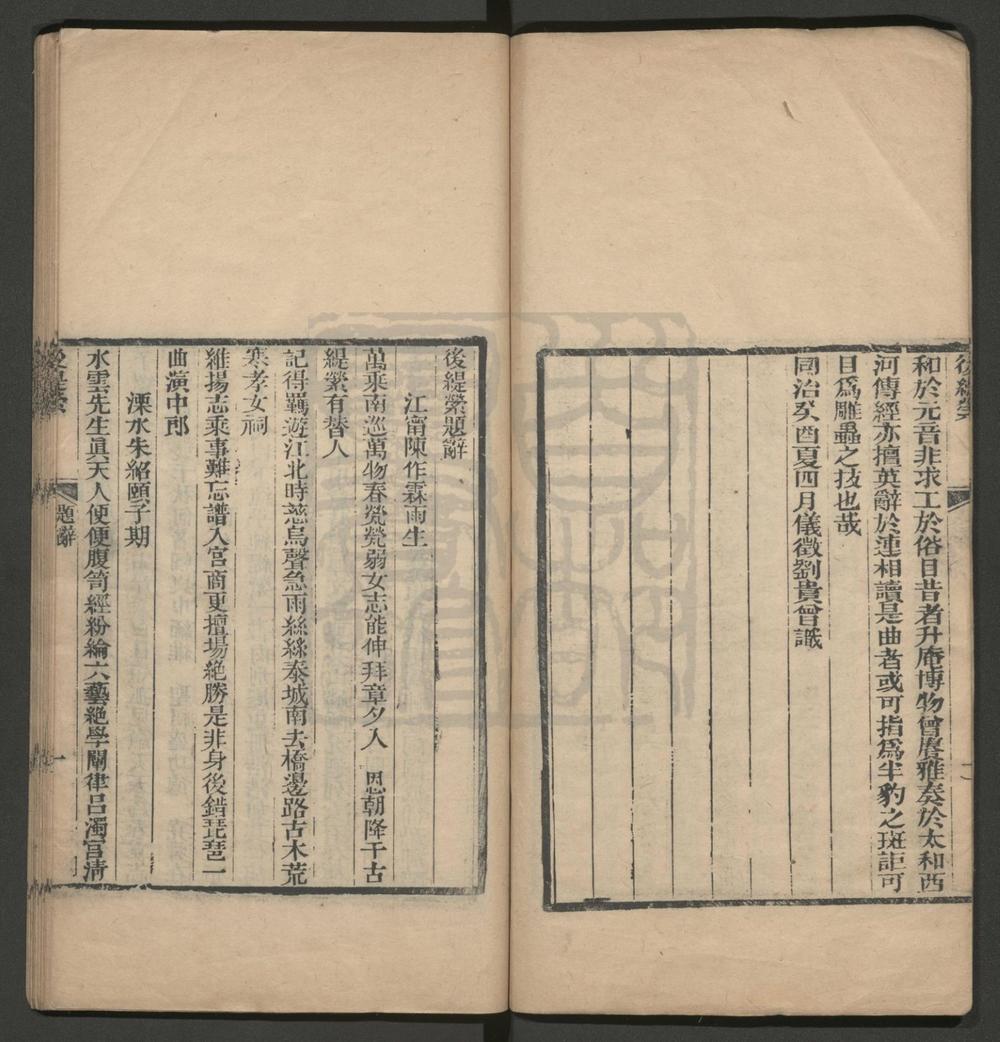 後緹縈
和於元音非求工於俗目昔者升庵博物曾賡雅奏於太和西
河傳經亦擅英辭於連相讀是曲者或可指爲半豹之斑詎可
目爲雕蟲之技也哉
同治癸酉夏四月儀徵劉貴曾識
後緹縈題辭
江甯陳作霖雨生
萬乘南巡萬物春煢煢弱女志能伸拜章夕入 恩朝降千古
緹縈有替人
記得羈遊江北時慈烏聲急雨絲絲泰城南去橋邊路古木荒
寒孝女祠
維揚志乘事難忘譜入宮商更擅場絶勝是非身後錯琵琶一
曲演中郎
溧水朱紹頤子期
水雲先生眞天人便便腹笥經紛綸六藝絶學闡律呂濁宮淸
後緹縈
題辭
一